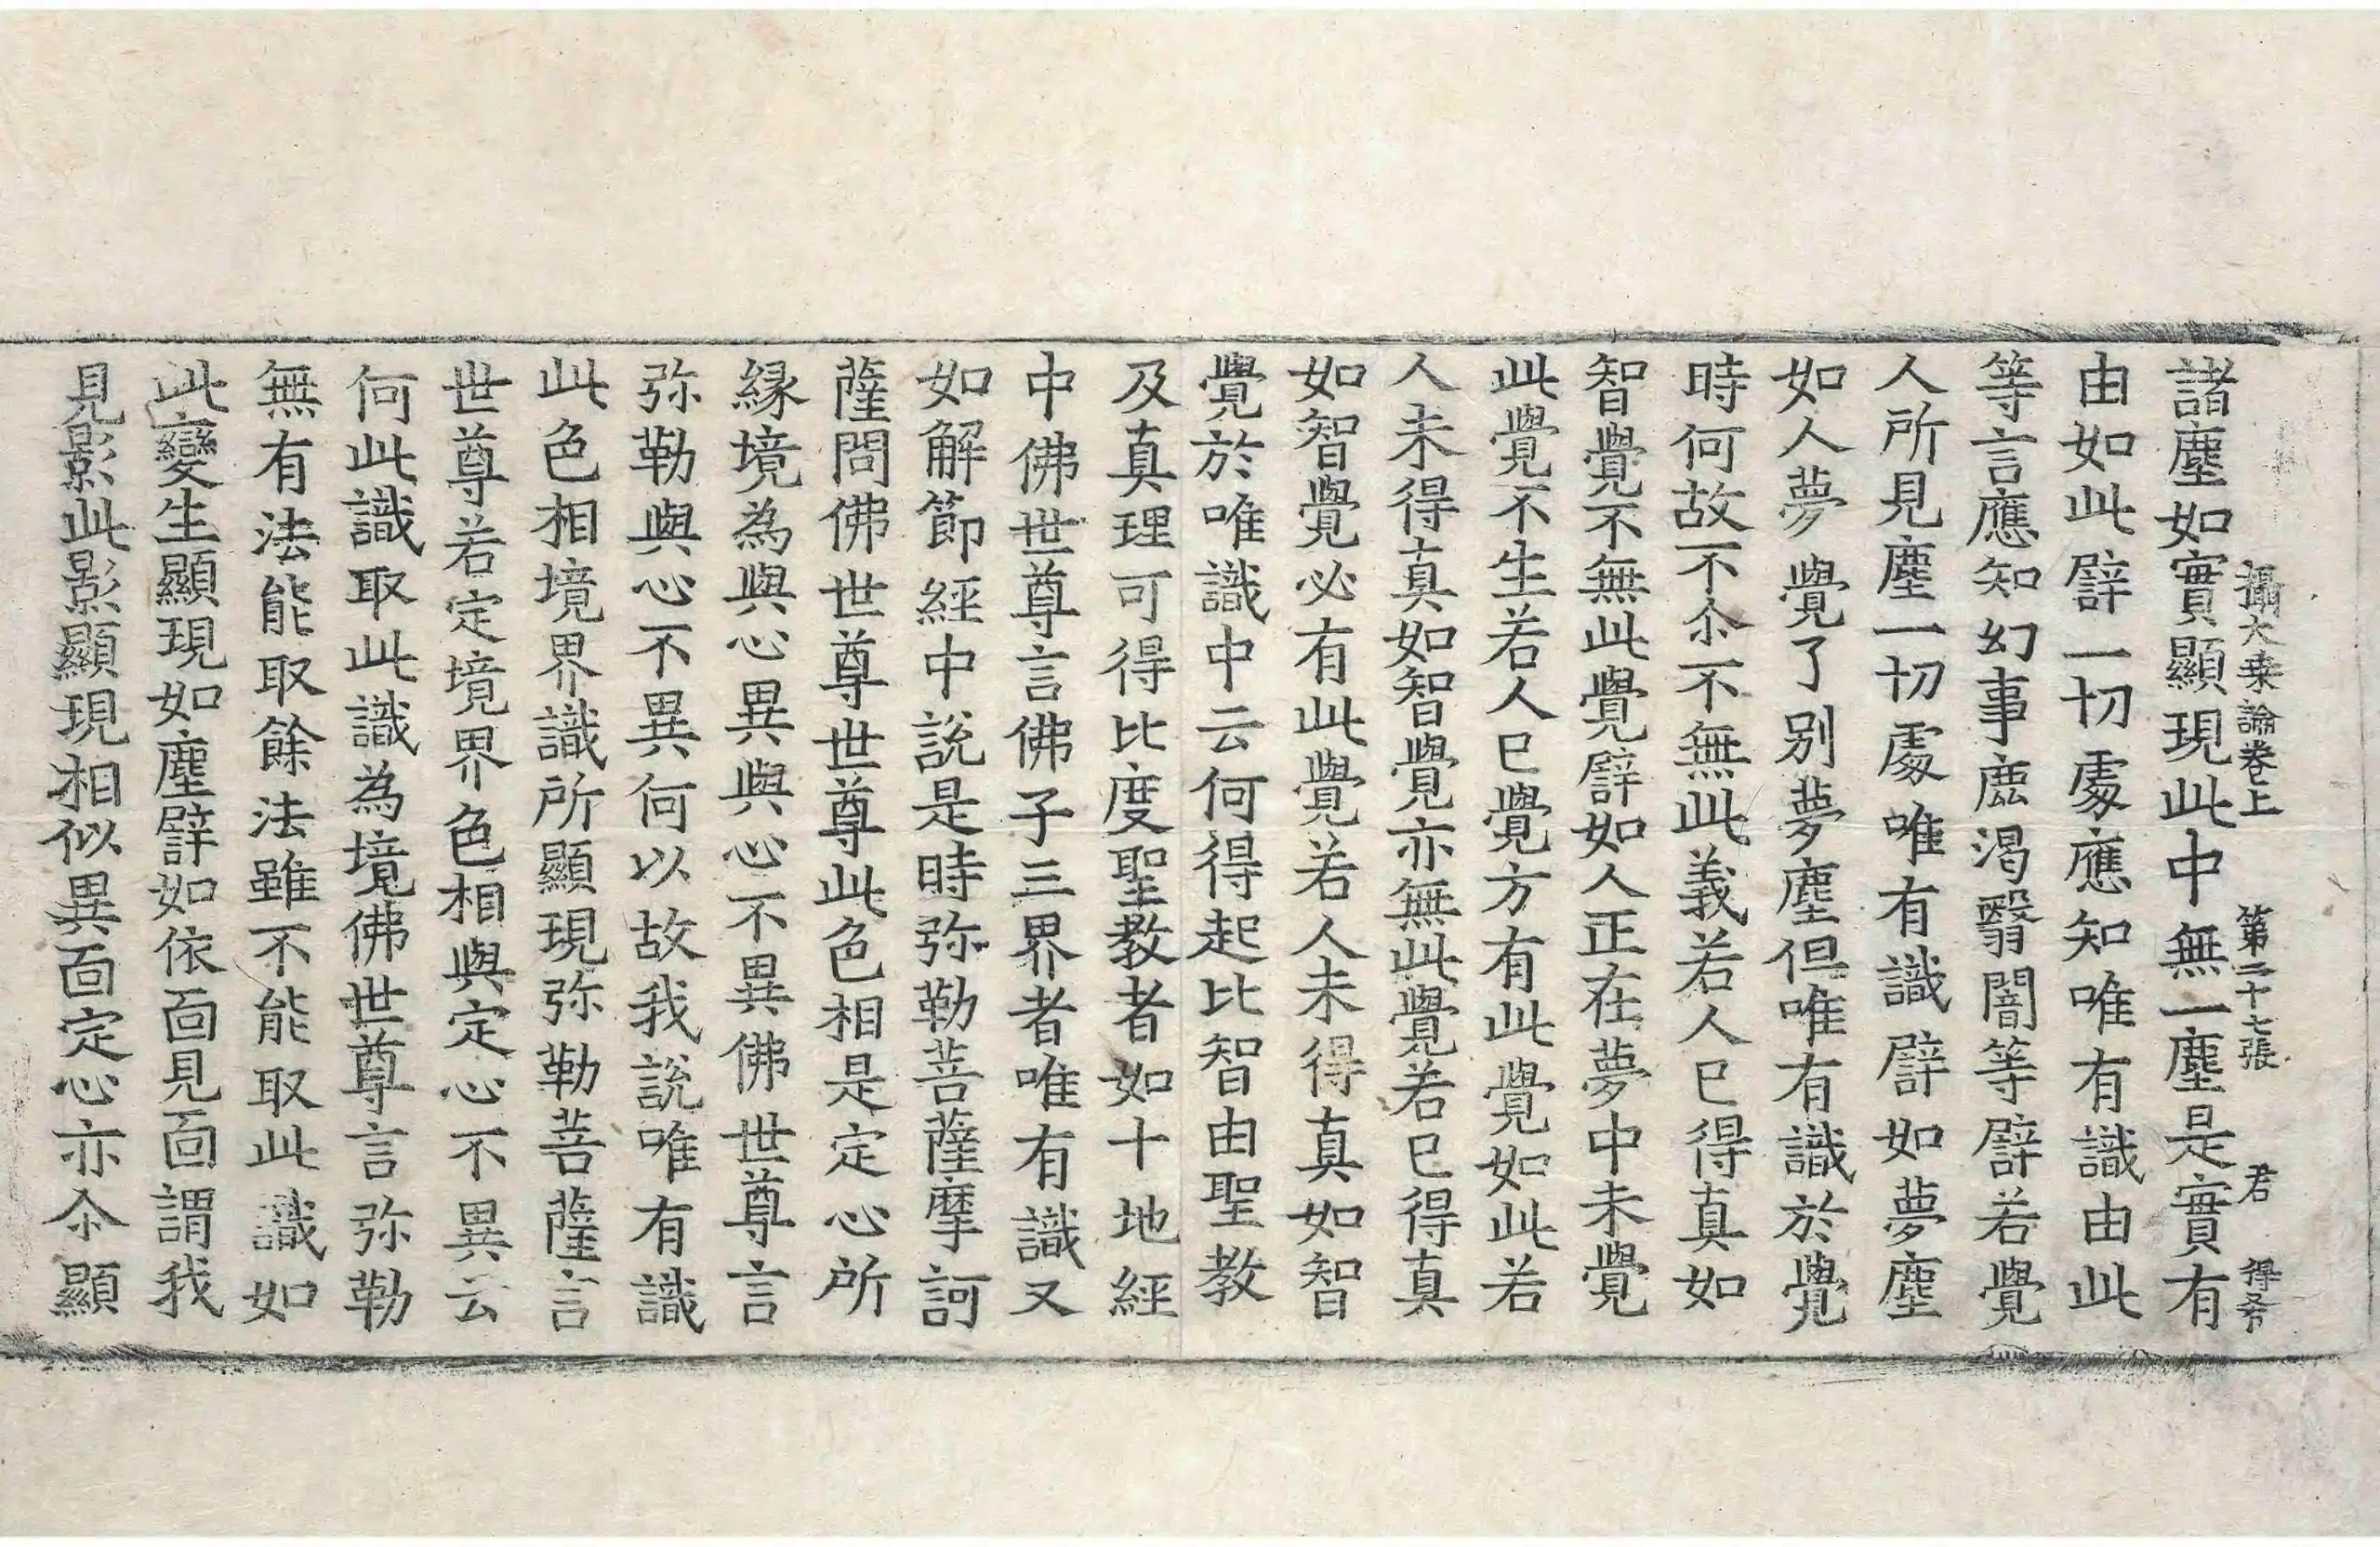 攝大乗論卷上 第二十七張 君 得岑
諸塵如實顯現此中無一塵是實有
由如此譬一切處應知唯有識由此
等言應知幻事鹿渴翳闇等譬若覺
人所見塵一切處唯有識譬如夢塵
如人夢覺了別夢塵但唯有識於覺
時何故不尒不無此義若人已得真如
智覺不無此覺譬如人正在夢中未覺
此覺不生若人已覺方有此覺如此若
人未得真如智覺亦無此覺若已得真
如智覺必有此覺若人未得真如智
覺於唯識中云何得起比智由聖教
及真理可得比度聖教者如十地經
中佛世尊言佛子三界者唯有識又
如解節經中說是時弥勒菩薩摩訶
薩問佛世尊世尊此色相是定心所
緣境為與心異與心不異佛世尊言
弥勒與心不異何以故我說唯有識
此色相境界識所顯現弥勒菩薩言
世尊若定境界色相與定心不異云
何此識取此識為境佛世尊言弥勒
無有法能取餘法雖不能取此識如
此變生顯現如塵譬如依面見面謂我
見影此影顯現相似異面定心亦尒顯